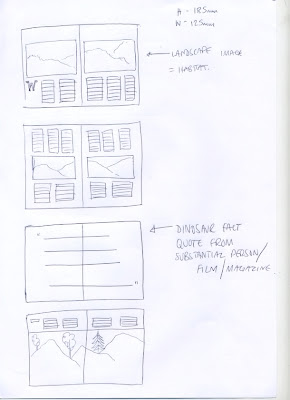 H - 125mm
W - 125mm
LANDSCAPE IMAGE
= HABITAT.
W
DINOSAUR FACT
QUOTE FROM
SUBSTANTIAL PERSON/
FILM/MAGAZINE
"
"